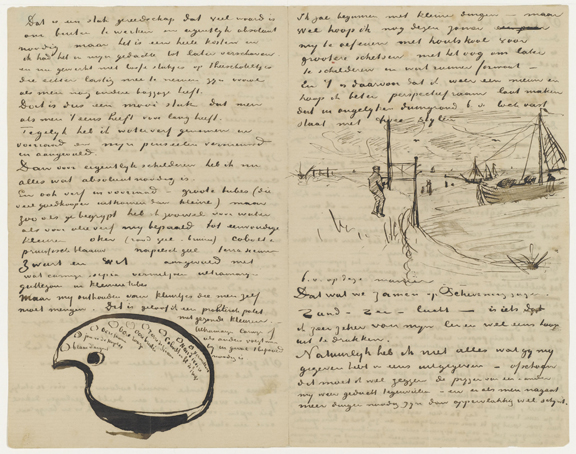 Dat is een stuk gereedschap dat veel waard is
om buiten te werken en eigenlijk absoluut
noodig. maar het is een heele kosten en
ik had het in mijn gedachte tot later verschoven
en me met losse stukjes op theeschoteltjes
die echter lastig mee te nemen zijn vooral
als men nog andere bagage heeft.
Dit is dus een mooi stuk dat men
als men 't eens heeft voor lang heeft.
Tegelijk heb ik waterverf genomen en
voorraad en mijn penseelen vernieuwd
en aangevuld
Dan voor eigentlijk schilderen heb ik nu
alles wat absoluut noodig is.
En ook verf in voorraad – groote tubes (die
veel goedkooper uitkomen dan kleine) maar
zoo als ge begrijpt heb ik zoowel voor water
als voor olie verf mij bepaald tot eenvoudige
kleuren oker (rood geel bruin) cobalt &
pruissisch blaauw napelsch geel terra sienna
Zwart en wit aangevuld met
wat carmijn sepia vermiljoen ultramarijn
guttegom in kleiner tubes
Maar mij onthouden van kleurtjes die men zelf
moet mengen. Dit is geloof ik een praktisch palet
met gezonde kleuren
Ultramarijn carmijn of
als ander voegt men
noodig is
Ik zal beginnen met kleine dingen – maar
wel hoop ik nog dezen zomer
mij te oefenen met houtskool voor
grootere schetsen met het oog om later
te schilderen in wat ruimer formaat
En 't is daarvoor dat ik weer een nieuw en
hoop ik beter perspectiefraam laat maken
dat in ongelijke duingrond b.v. hecht vast
staat met twee stijlen
b.v. op deze manier
Dat wat we zamen op Scheveningen zagen
Zand – Zee – lucht – is iets dat
ik zeer zeker van mijn leven wel eens hoop
uit te drukken.
Natuurlijk heb ik niet alles wat gij mij
gegeven hebt in eens uitgegeven – ofschoon
dat moet ik wel zeggen de prijzen van een &amp; ander
mij weer geducht tegenvielen – en er als men nagaat
meer dingen noodig zijn dan oppervlakkig wel schijnt.